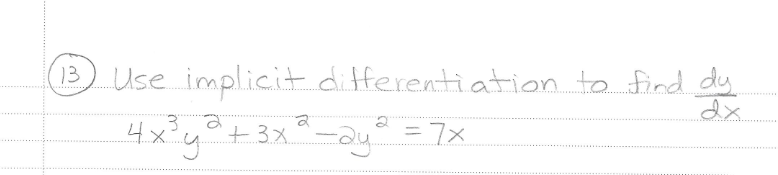 13 Use implicit differentiation to find dy/dx
4x³y² + 3x² - 2y² = 7x